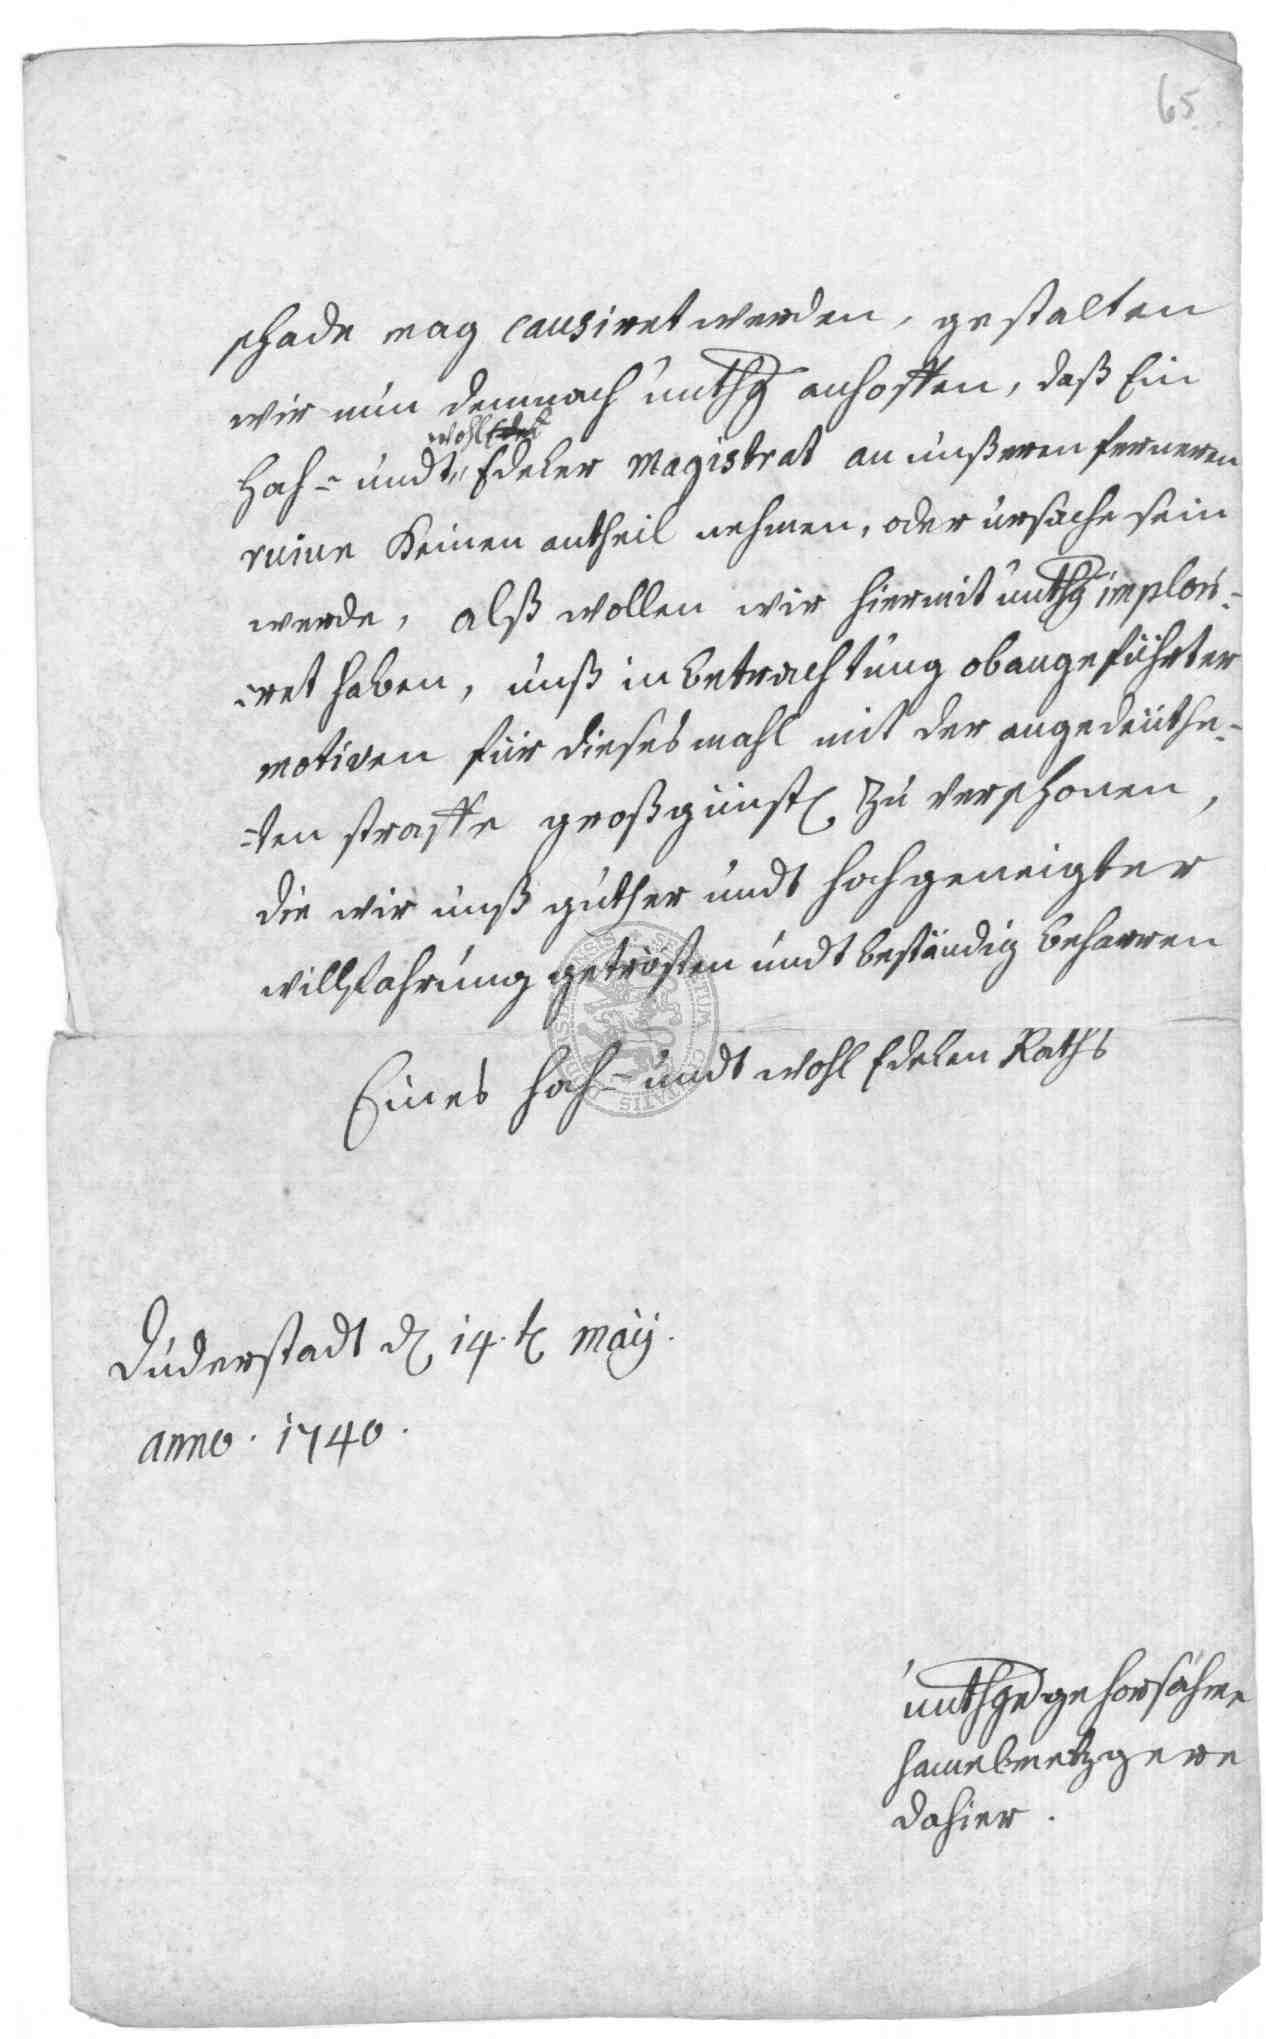 65
schade mag causiret werden, gestalten
wir nun demnach unthg anhoffen, daß Ein
wohl
Hoch- undt Edeler Magistrat an unßeren ferneren
ruine Keinen antheil nehmen, oder ursache sein
werde, alß wollen wir hiermit unthg implori-
-ret haben, unß in betrachtung obangeführter
motiven für dieses mahl mit der angedeüthe-
-ten straffe großgünstl zu verschonen,
die wir unß guther undt hochgeneigter
willfahrung getrösten undt beständig beharren
Eines hoch- undt wohl Edelen Raths
Duderstadt d 14.t May.
anno. 1740.
unthge gehorsahme
dahier.